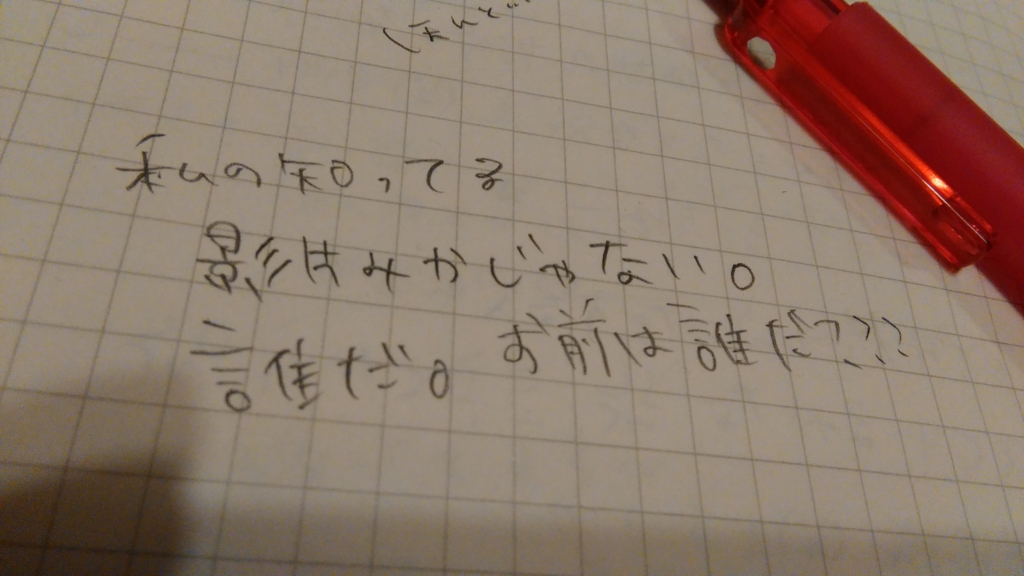 私の知ってる
影はみかじゃない。
誰だ。お前は誰だ???